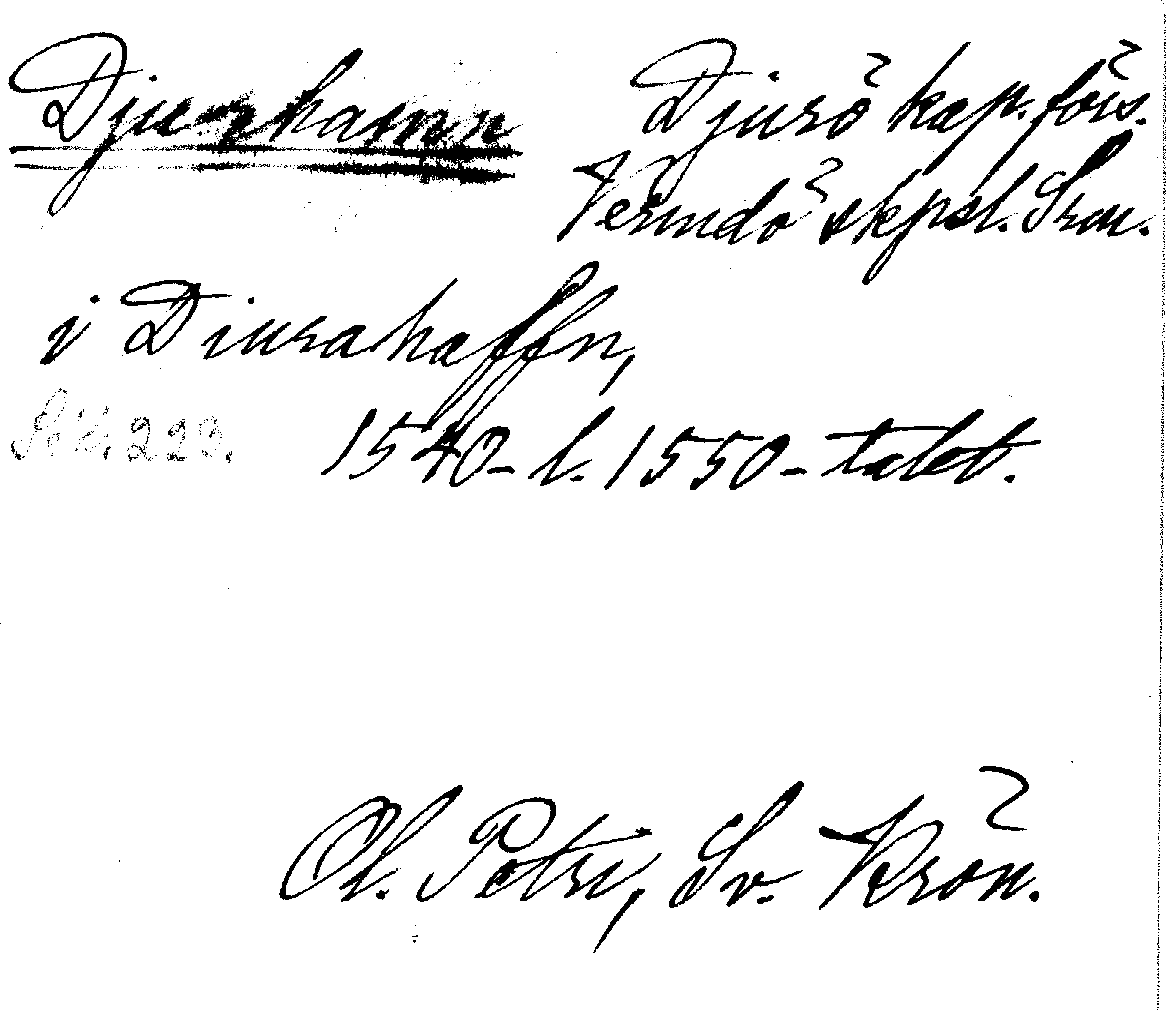 Djurhamn
Djurö kap. förs.
Vermdö skpsl. Srm.
i Diurahaffn,
Sid. 223. 1540- l. 1550-talet.
Ol. Petri, Sv. Krön.